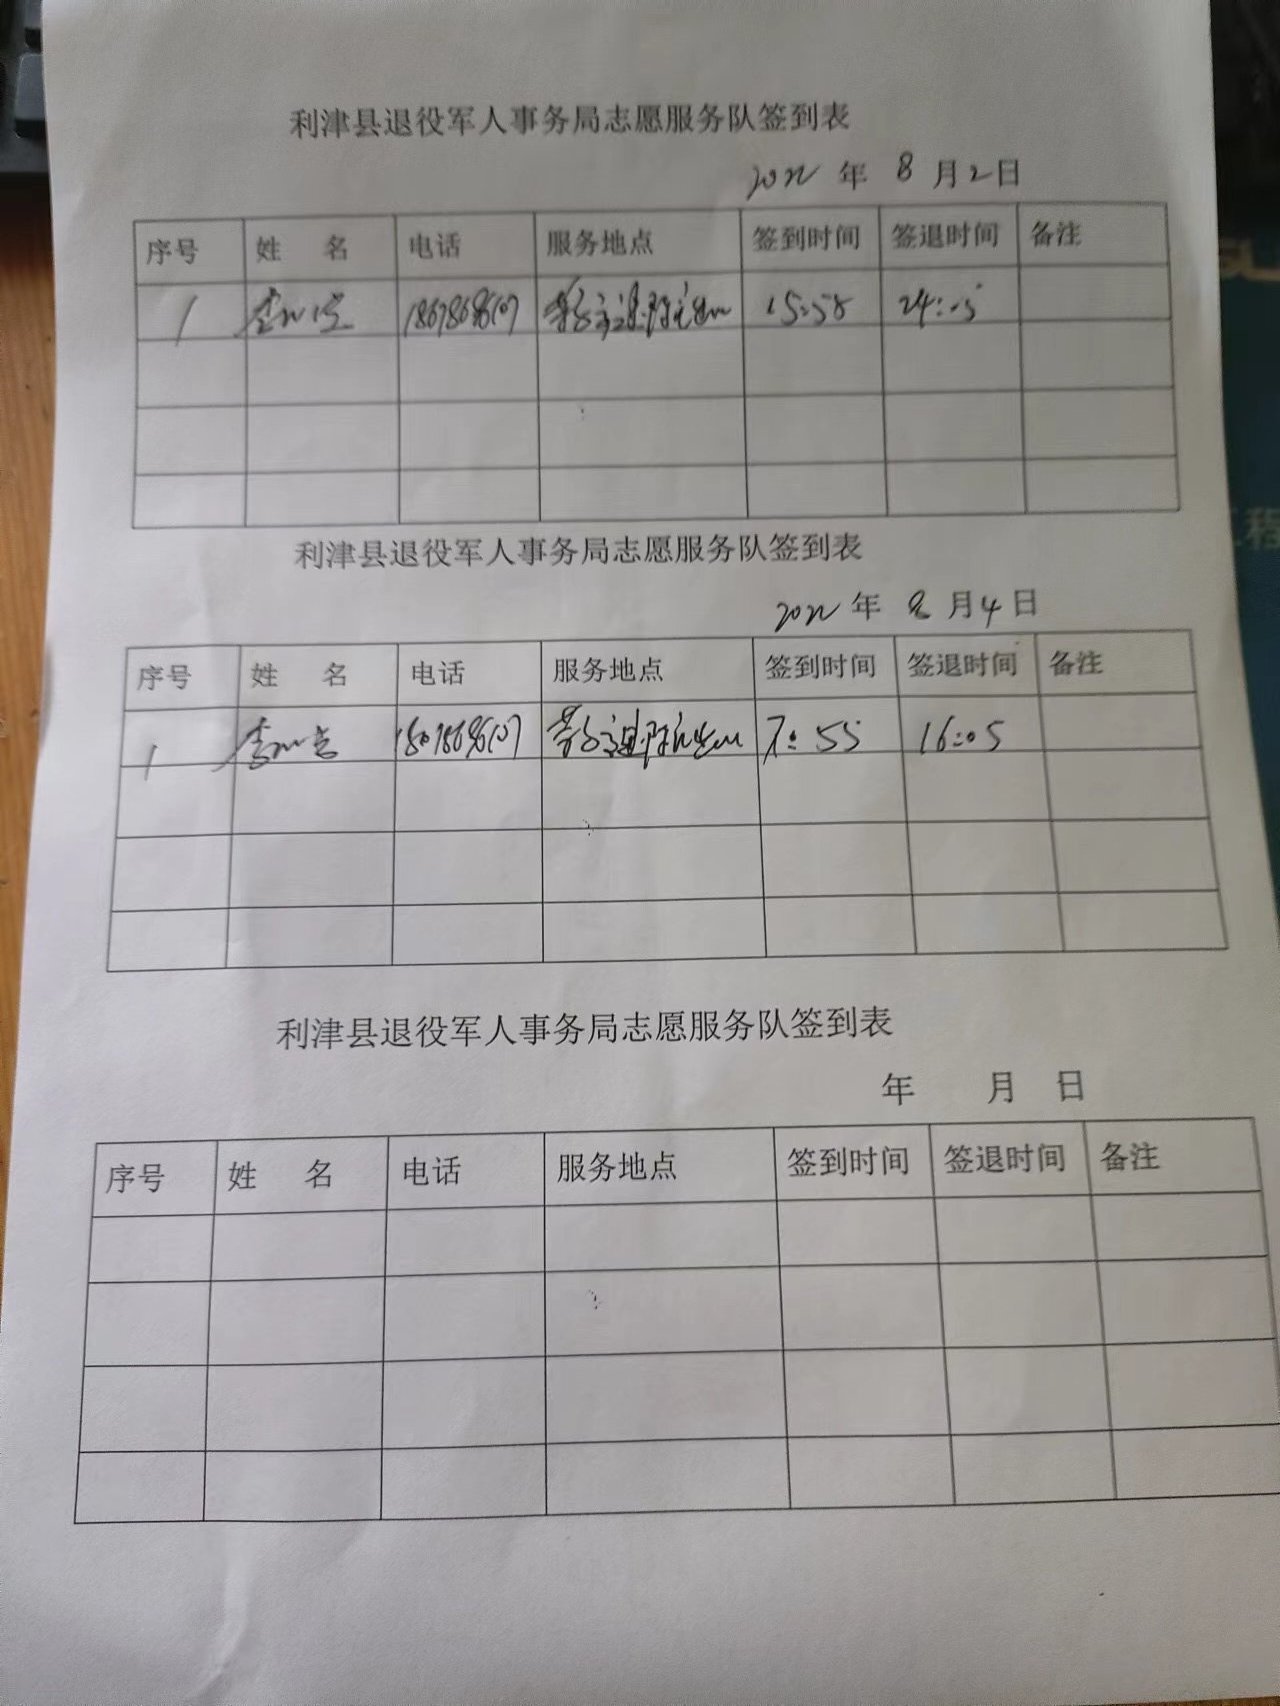 利津县退役军人事务局志愿服务队签到表
2022 年 8 月 2 日
序号 姓 名 电话 服务地点 签到时间 签退时间 备注
1 15:58 24:05
利津县退役军人事务局志愿服务队签到表
2022 年 8 月 4 日
序号 姓 名 电话 服务地点 签到时间 签退时间 备注
1 7:55 16:05
利津县退役军人事务局志愿服务队签到表
年 月 日
序号 姓 名 电话 服务地点 签到时间 签退时间 备注
程